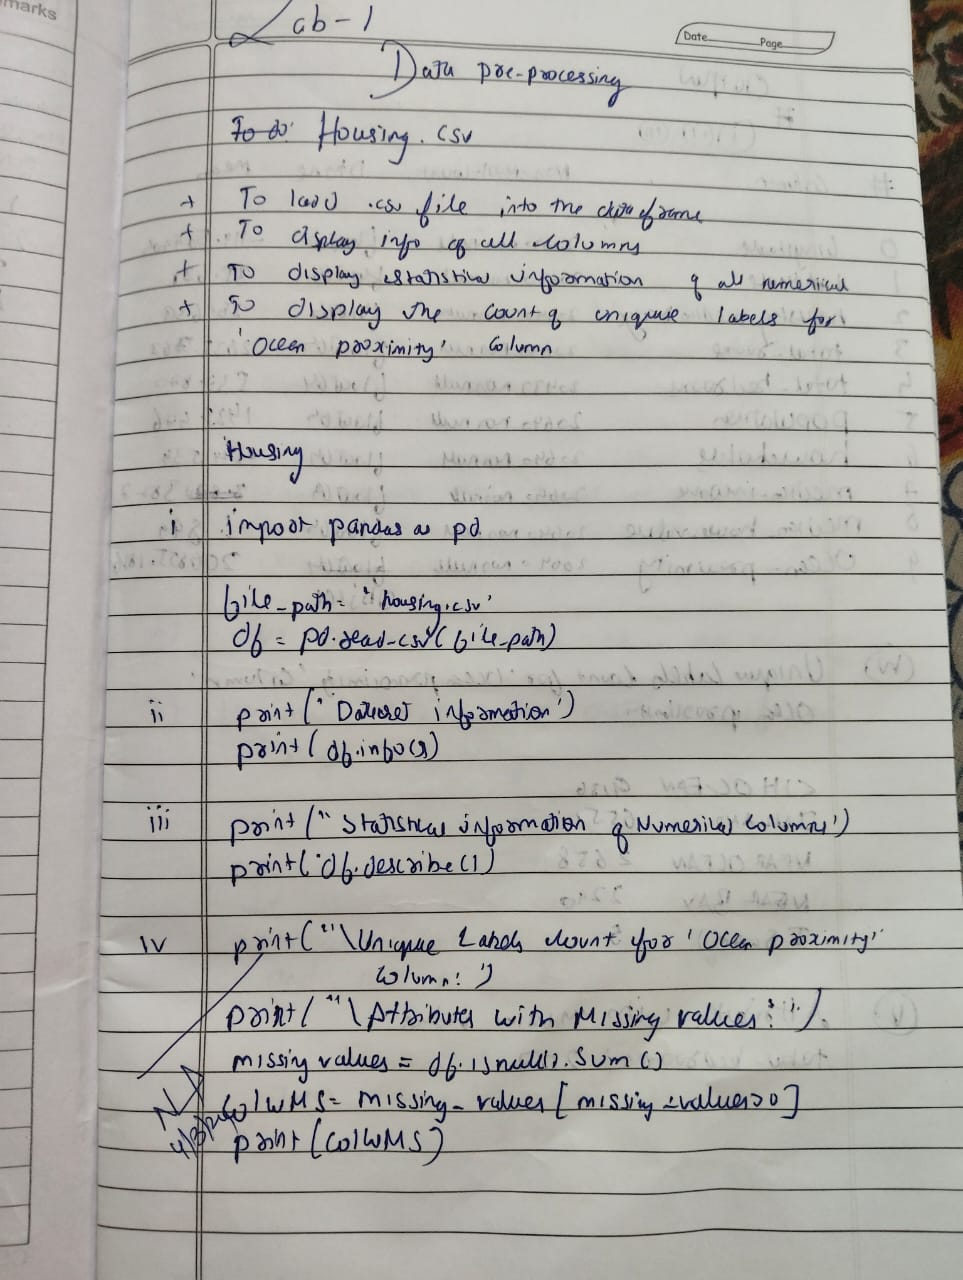 marks
Lab-1
Date Page
Data pre-processing
To do: Housing.csv
+ To load .csv file into the dataframe
+ To display info of all columns
+ To display statistical information of all numerical
+ To display the count of unique labels for
'Ocean proximity' column
Housing
i import pandas as pd
file_path = "housing.csv'
df = pd.read_csv(file_path)
ii print("Dataset information")
print(df.info())
iii print("Statistical information of Numerical Columns")
print(df.describe())
iv print("\Unique Labels Count for 'Ocean proximity'
column:")
print("\Attributes with Missing values:").
missing values = df.isnull().sum()
colwMS = missing_values[missing_values>0]
print(colwMS)